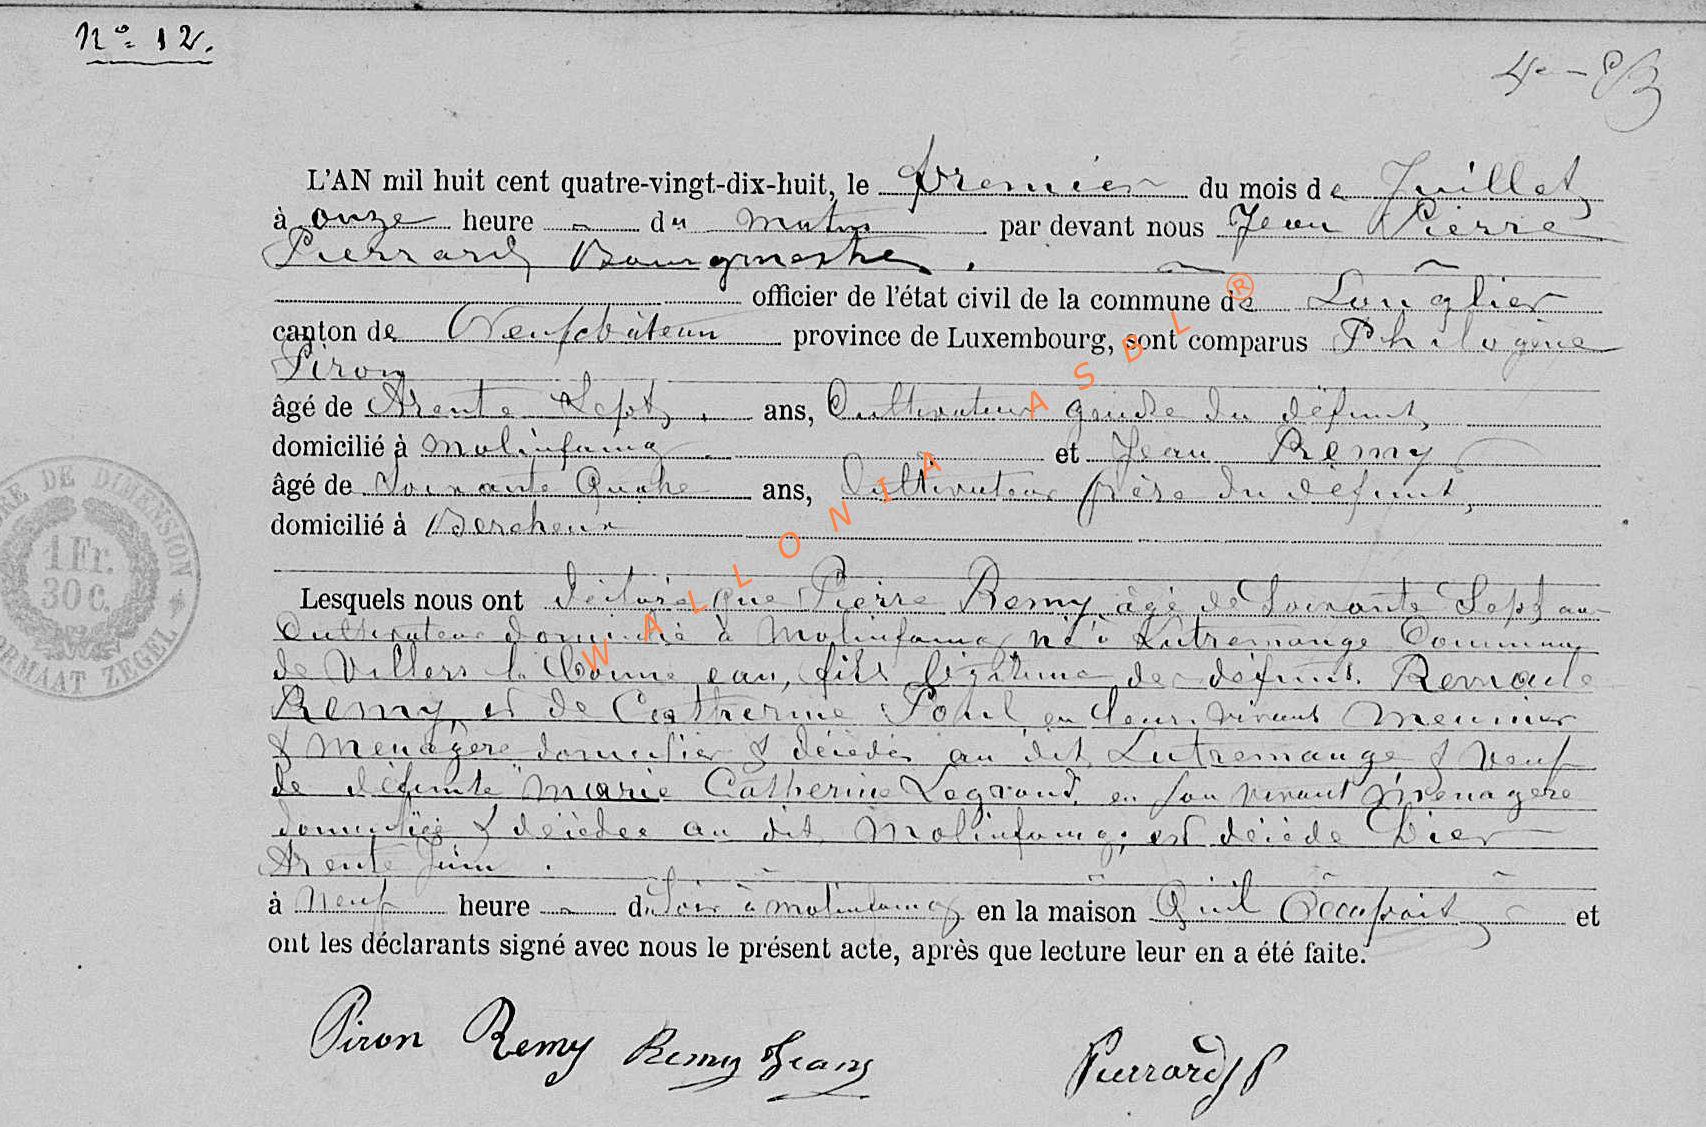 N° 12.
L'AN mil huit cent quatre-vingt-dix-huit, le premier du mois de Juillet
à onze heure du matin par devant nous Jean Pierre
Pierrard, Bourgmestre.
officier de l'état civil de la commune de Longlier
canton de Neufchâteau province de Luxembourg, sont comparus Philogène
Piron
âgé de trente Sept, ans, Cultivateur gendre du défunt,
domicilié à Molinfaing et Jean Remy,
âgé de Soixante Quatre ans, Cultivateur frère du défunt,
domicilié à Bercheux
Lesquels nous ont déclaré que Pierre Remy âgé de Soixante Sept ans
Cultivateur domicilié à Molinfaing né à Lutremange Commune
de Villers la bonne eau, fils légitime de défunts Remacle
Remy, et de Catherine Poul en leur vivant Meunier
& Menagère domicilier & décédés au dit Lutremange & Veuf
de défunte Marie Catherine Legrand, en son vivant Menagère
domiciliée & décédée au dit Molinfaing, est décédé hier
trente Juin.
à Neuf heure du Soir à Molinfaing en la maison Qu'il Occupait et
ont les déclarants signé avec nous le présent acte, après que lecture leur en a été faite.
Piron Remy Remy Jean Pierrard J P
TIMBRE DE DIMENSION
1 Fr.
30 C.
FORMAAT ZEGEL
WALLONIA ASBL ®